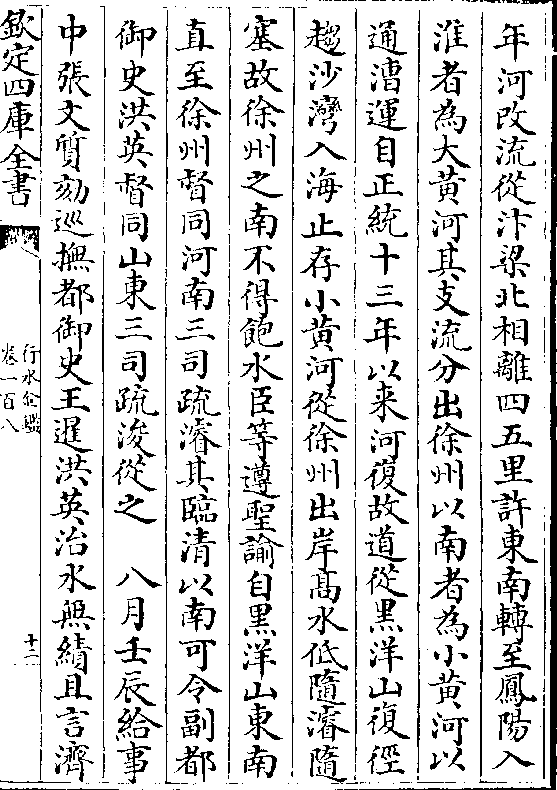 年河改流從汴梁北相離四五里許東南轉至鳳陽入
淮者為大黃河其支流分出徐州以南者為小黃河以
通漕運自正統十三年以来河復故道從黒洋山復徑
趨沙灣入海止存小黃河從徐州出岸髙水低隨濬隨
塞故徐州之南不得飽水臣等遵聖諭自黒洋山東南
直至徐州督同河南三司疏濬其臨清以南可令副都
御史洪英督同山東三司疏浚從之　八月壬辰給事
中張文質劾巡撫都御史王暹洪英治水無績且言濟
欽定四庫全書
行水金鑑
卷一百八
十二